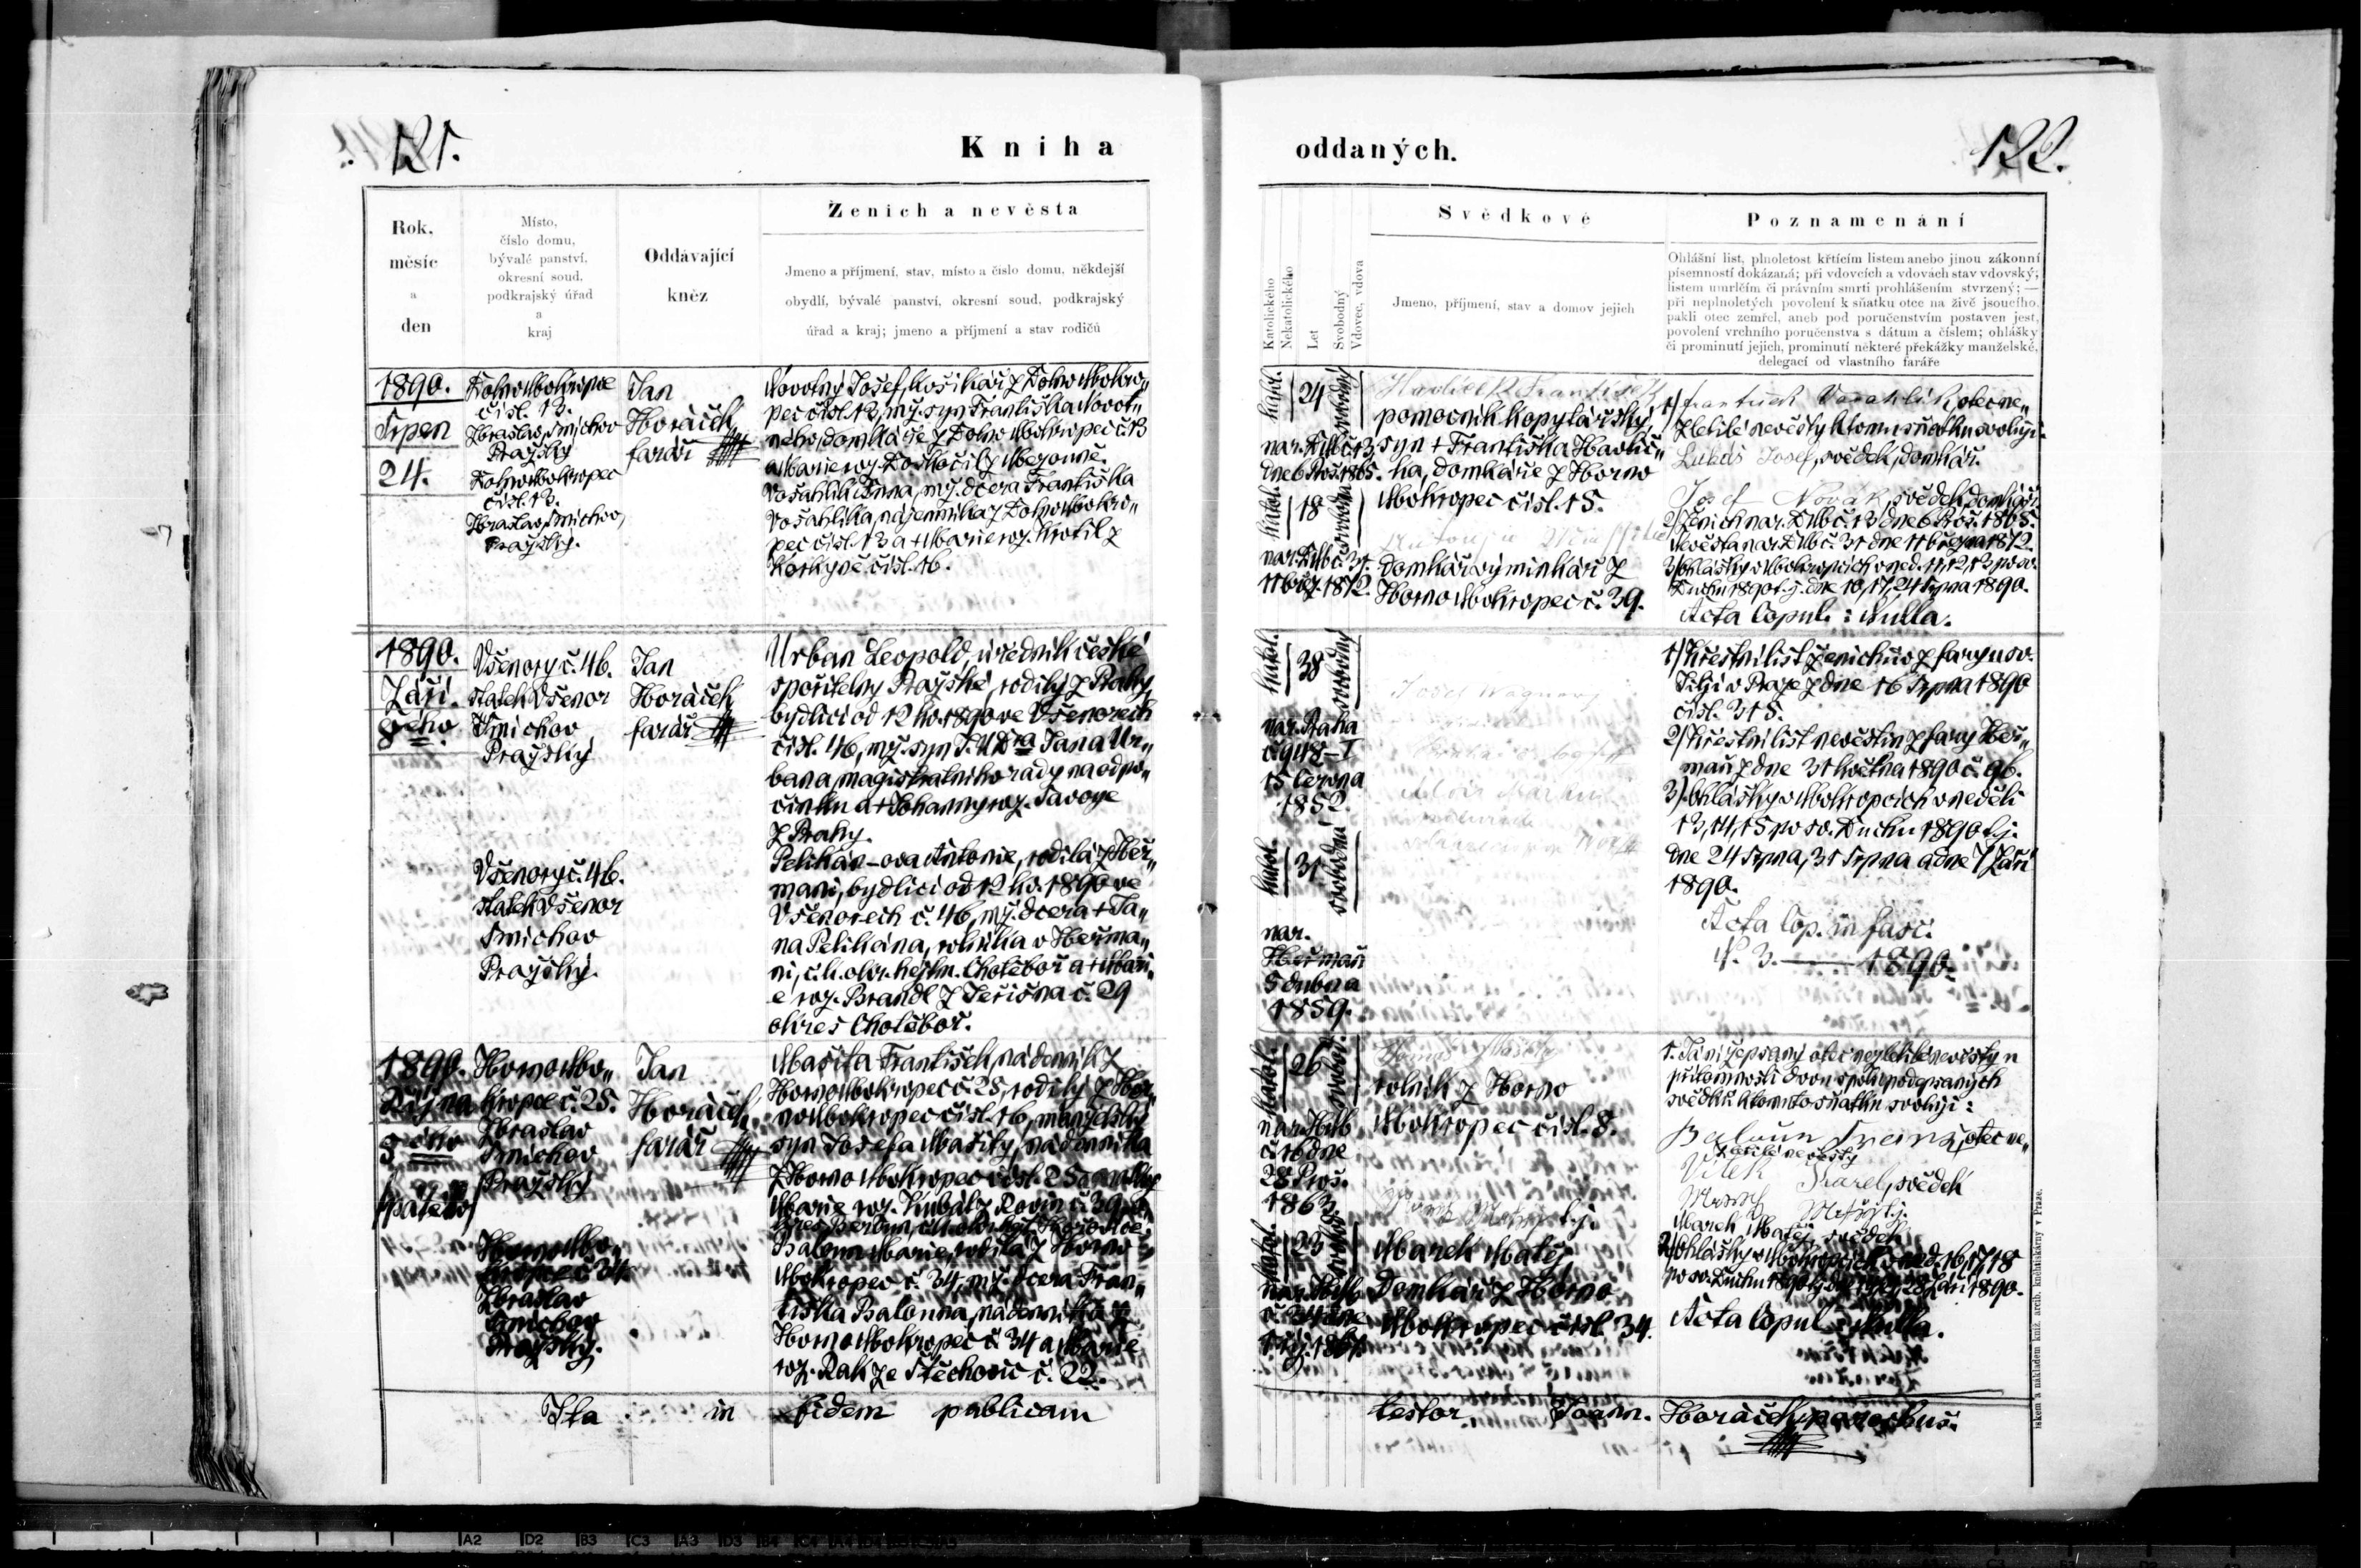 121.
Kniha
oddaných.
122.
Rok,
měsíc
a
den
Místo,
číslo domu,
bývalé panství,
okresní soud,
podkrajský úřad
a
kraj
Oddávající
kněz
Ženich a nevěsta
Jmeno a příjmení, stav, místo a číslo domu, někdejší
obydlí, bývalé panství, okresní soud, podkrajský
úřad a kraj; jmeno a příjmení a stav rodičů
Katolického
Nekatolického
Let
Svobodný
Vdovec, vdova
Svědkové
Jmeno, příjmení, stav a domov jejich
Poznamenání
Ohlášní list, plnoletost křtícím listem anebo jinou zákonní
písemností dokázaná; při vdovcích a vdovách stav vdovský;
listem umrlčím či právním smrti prohlášením stvrzený; —
při neplnoletých povolení k sňatku otce na živě jsoucího,
pakli otec zemřel, aneb pod poručenstvím postaven jest,
povolení vrchního poručenstva s dátum a číslem; ohlášky
či prominutí jejich, prominutí některé překážky manželské,
delegací od vlastního faráře
1890.
Srpen
24.
Dolno Mokropce
čísl. 13.
Zbraslav, Smíchov
Pražský
Dolno Mokropec
čísl. 13.
Zbraslav, Smíchov,
Pražský.
Jan
Horáček
farář
Novotný Josef, košikář z Dolno Mokro„
pec čísl. 13, mž. syn Františka Novot„
ného, domkáře z Dolno Mokropec č. 13
a Marie roz.
Vošahlík Anna, mž. dcera Františka
Vošahlíka, nájemníka z Dolno Mokro„
pec čísl. 13 a + Marie roz. Krotil z
čísl. 16.
katol.
24
svobodný
nar. D.Mb. č. 13
dne 6 Pros. 1865.
katol.
18
svobodna
nar. D.Mb č. 31.
11 břez. 1872.
Havlíček František
pomocník kopytářský,
syn + Františka Havlíč„
ka, domkáře z Horno
Mokropec čísl. 15.
domkář výminkář z
Horno Mokropec č. 39.
1) František Vošahlík, otec ne„
zletilé nevěsty k tomu sňatku svoluji.
Lukáš Josef, svědek, domkář.
Josef Novák, svědek, domkář
2) Ženich nar. D Mb č. 13 dne 6 Pros. 1865.
Nevěsta nar. D Mb č. 31 dne 11 března 1872.
3) Ohlášky v Mokropcích v ned. 11, 12, 13 po sv.
Duchu 1890 t. j. dne 10, 17, 24 Srpna 1890.
Acta Copul.: Nulla.
1890.
Září.
8ého
Všenory č. 46.
statek Všenor
Smíchov
Pražský
Všenory č. 46.
statek Všenor
Smíchov
Pražský.
Jan
Horáček
farář
Urban Leopold, úředník české
spořitelny Pražské, rodilý z Prahy,
bydlící od 12 kv. 1890 ve Všenorech
čísl. 46, mž. syn J. U. Dra Jana Ur„
bana, magistrátního rady na odpo„
činku a + Johanny roz. Savoye
z Prahy.
Pelikán-ova Antonie, rodilá z Heř„
maní, bydlící od 12 kv. 1890 ve
Všenorech č. 46, mž. dcera + Ja„
na Pelikána, rolníka v Heřma„
ni, c. k. okr. hejtm. Chotěboř a + Mari„
e roz. Brandl z Jeřišna č. 29
okres Chotěboř.
katol.
38
svobodný
nar. Praha
č. 948-I
15 Června
1852.
katol.
31
svobodná
nar.
Heřmaň
5 dubna
1859.
Josef Wagner
1) Křestní list ženichův z fary u sv.
Jiljí v Praze z dne 16 Srpna 1890
čísl. 315.
2) Křestní list nevěstin z fary Heř„
maň z dne 31 května 1890 č. 96.
3) Ohlášky v Mokropcích v neděli
13, 14, 15 po sv. Duchu 1890 t. j.
dne 24 Srpna, 31 Srpna a dne 7 Září
1890.
Acta Cop. in fasc.
N. 3. —— 1890.
1890.
Října
5ého
/pátého/
Horno Mo„
kropce č. 25.
Zbraslav
Smíchov
Pražský
Horno Mo„
kropce č. 34
Zbraslav
Smíchov
Pražský.
Jan
Horáček,
farář
Mašita František, nádenník z
Horno Mokropec č. 25, rodilý z Hor„
no Mokropec čísl. 16, manželský
syn Josefa Mašity, nádenníka
z Horno Mokropec čísl. 25 a
Marie roz. Kubát z Rovin č. 39
Baloun Marie, rodilá z Horno
Mokropec č. 34, mž. dcera Fran„
tiška Balouna, nádenníka z
Horno Mokropec č. 34 a Marie
roz. Rak ze Štěchovic č. 22.
katol.
26
svobodný
nar. H Mb
č. 16 dne
28 Pros.
1863.
katol.
23
nar. H Mb
č. 34 dne
rolník z Horno
Mokropec čísl. 8.
t. j.
Marek Matěj,
Domkář z Horno
Mokropec čísl. 34.
1. Já níže psaný otec nezletilé nevěsty u
přítomnosti dvou spolupodepsaných
svědků k tomuto sňatku svoluji:
Baloun otec ne„
zletilé nevěsty
Vilek Karel, svědek
Marek Matěj, svědek
2) Ohlášky v Mokropcích v ned. 16, 17, 18
po sv. Duchu 1890 t. j. dne 28 Září 1890.
Acta Copul.: Nulla.
Ita in fidem publicam
testor, Joann. Horáček, parochus.